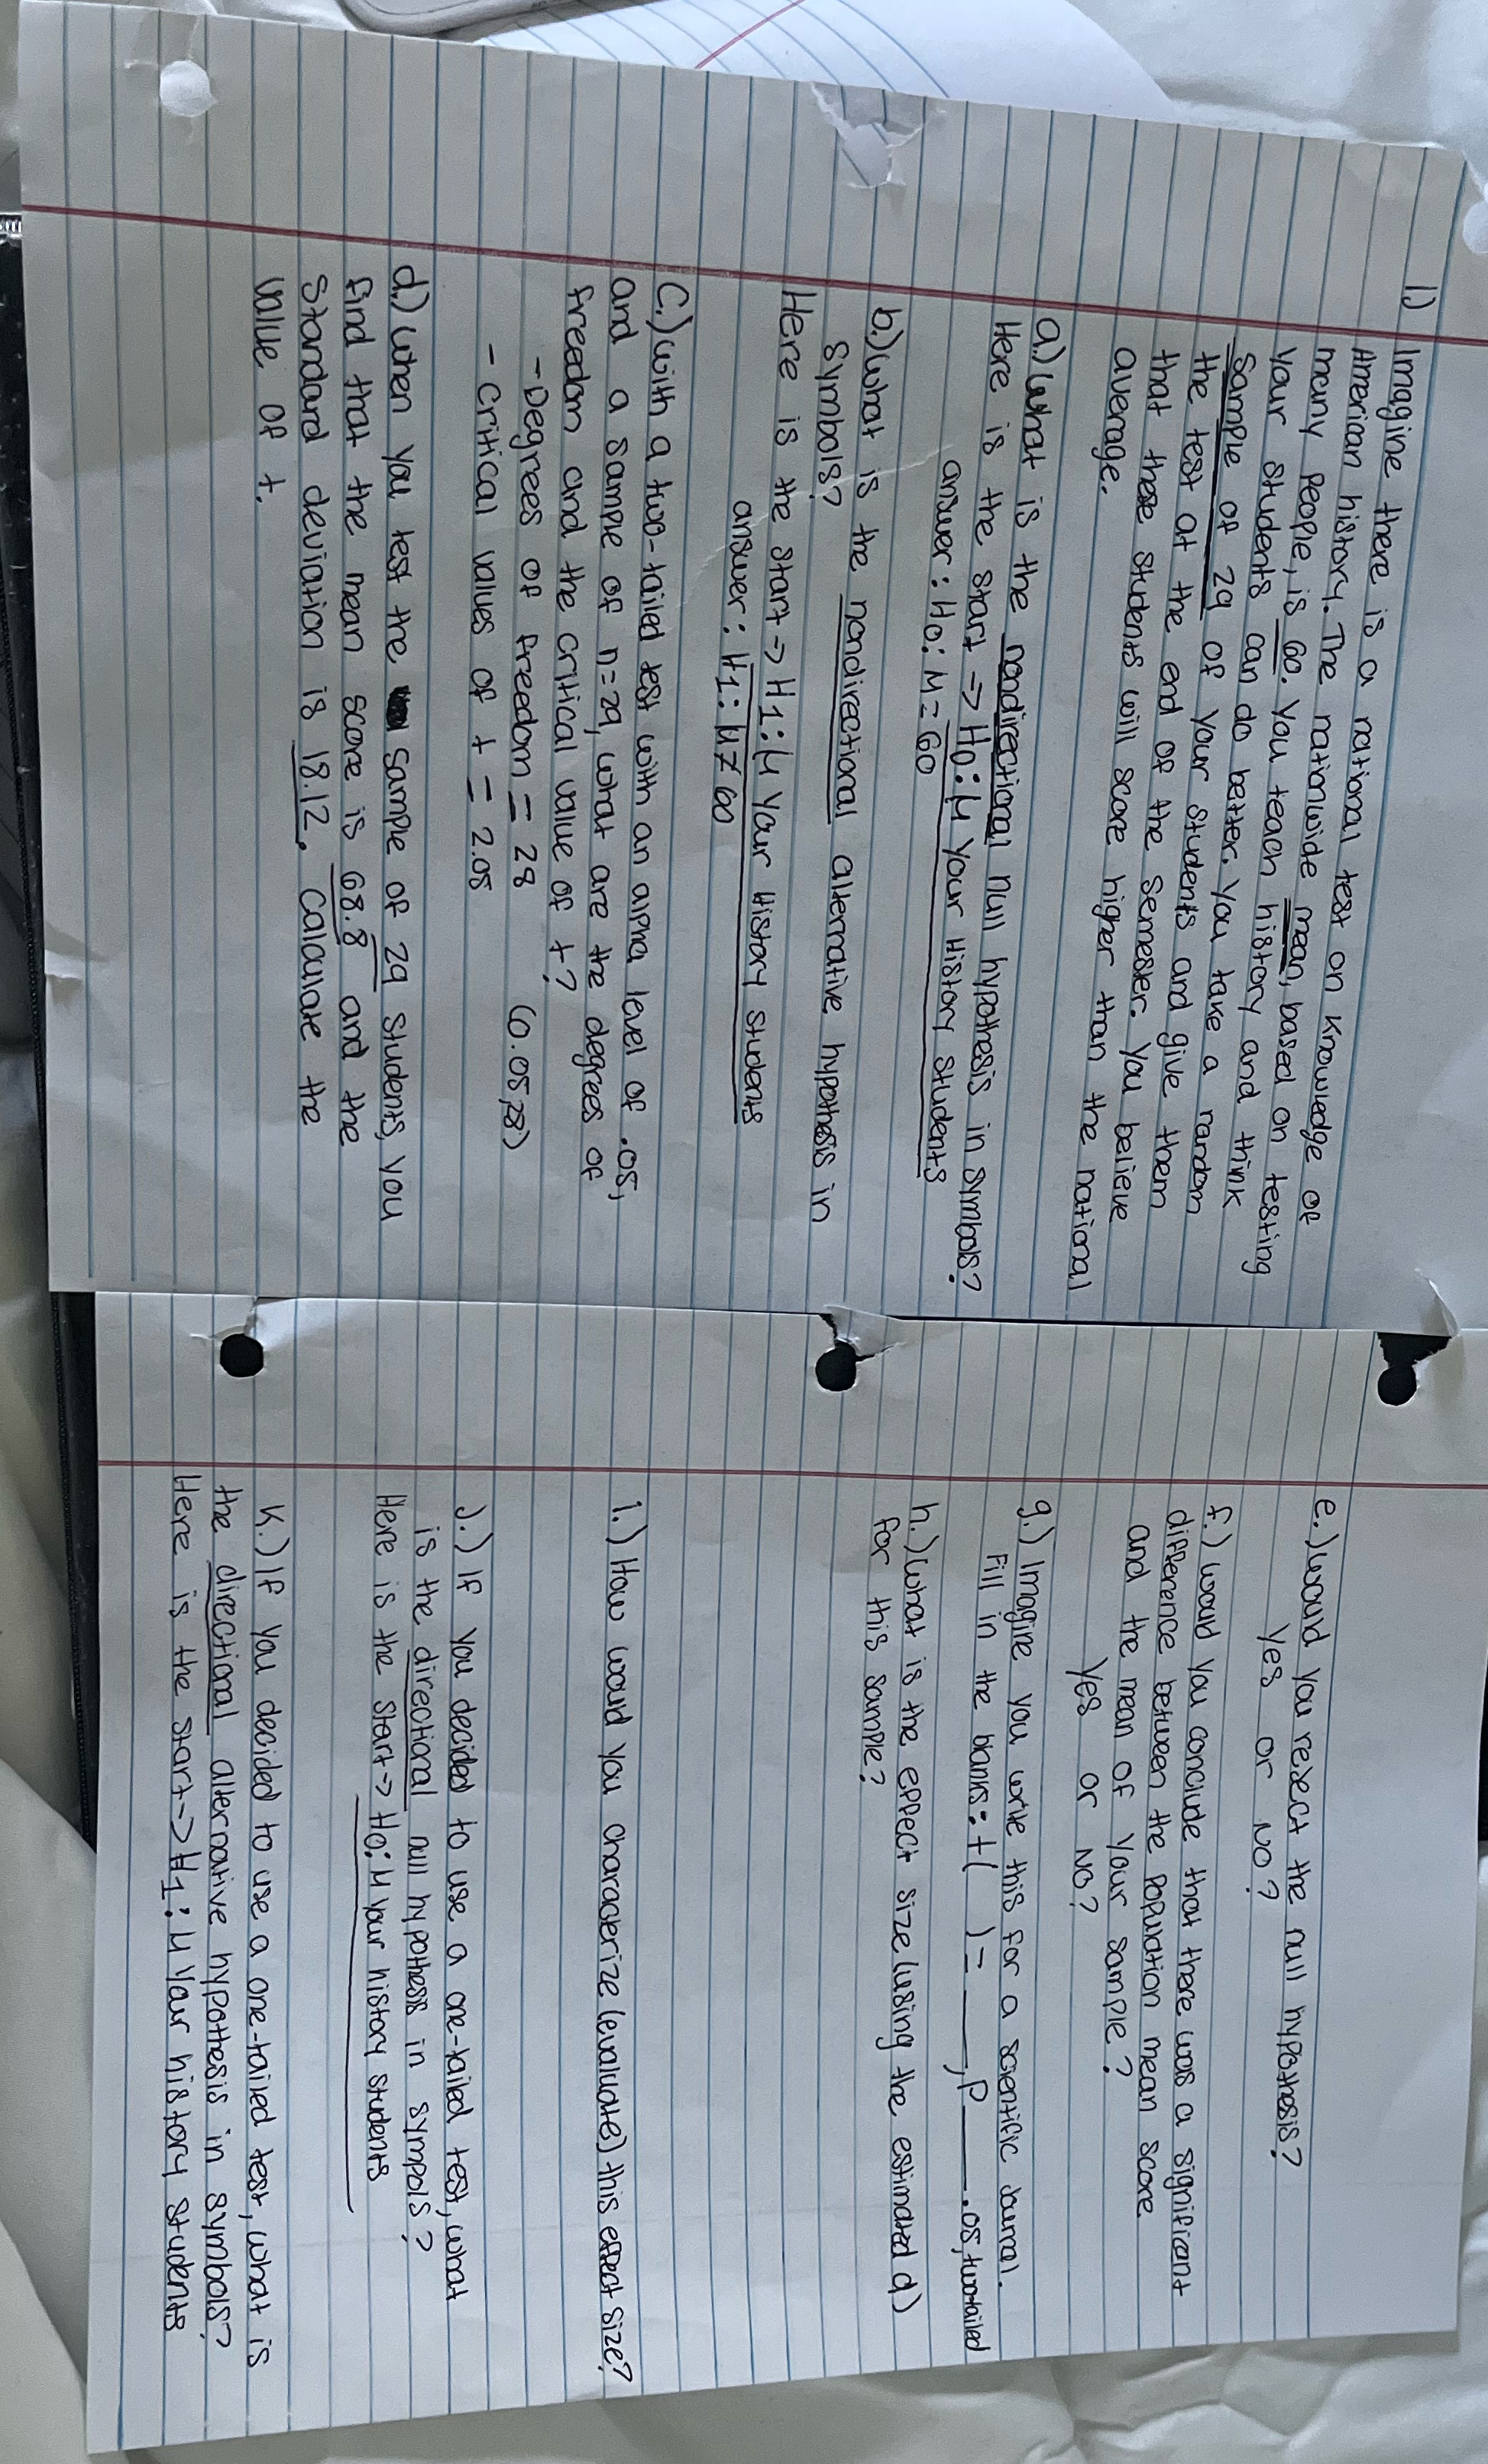 1.) Imagine there is a national test on knowledge of
American history. The nationwide mean, based on testing
many people, is 60. You teach history and think
your students can do better. You take a random
sample of 29 of your students and give them
the test at the end of the semester. You believe
that these students will score higher than the national
average.
a.) What is the nondirectional null hypothesis in symbols?
Here is the start -> H0: μ your History students
answer: H0: M = 60
b.) What is the nondirectional alternative hypothesis in
symbols?
Here is the start -> H1: μ your History students
answer: H1: μ ≠ 60
C.) with a two-tailed test with an alpha level of .05,
and a sample of n=29, what are the degrees of
freedom and the critical value of t?
- Degrees of freedom = 28 (0.05,28)
- Critical values of t = 2.05
d.) when you test the sample of 29 students, you
find that the mean score is 68.8 and the
Standard deviation is 18.12. Calculate the
value of t.
e.) would you reject the null hypothesis?
Yes or No?
f.) would you conclude that there was a significant
difference between the population mean score
and the mean of your sample?
Yes or No?
g.) Imagine you write this for a scientific journal.
Fill in the blanks: t( ) = ___, P ___ .05, two tailed
h.) What is the effect size (using the estimated d)
for this sample?
i.) How would you characterize (evaluate) this effect size?
J.) If you decided to use a one-tailed test, what
is the directional null hypothesis in symbols?
Here is the start -> H0: μ Your history students
K.) If you decided to use a one-tailed test, what is
the directional alternative hypothesis in symbols?
Here is the start -> H1: μ Your history students